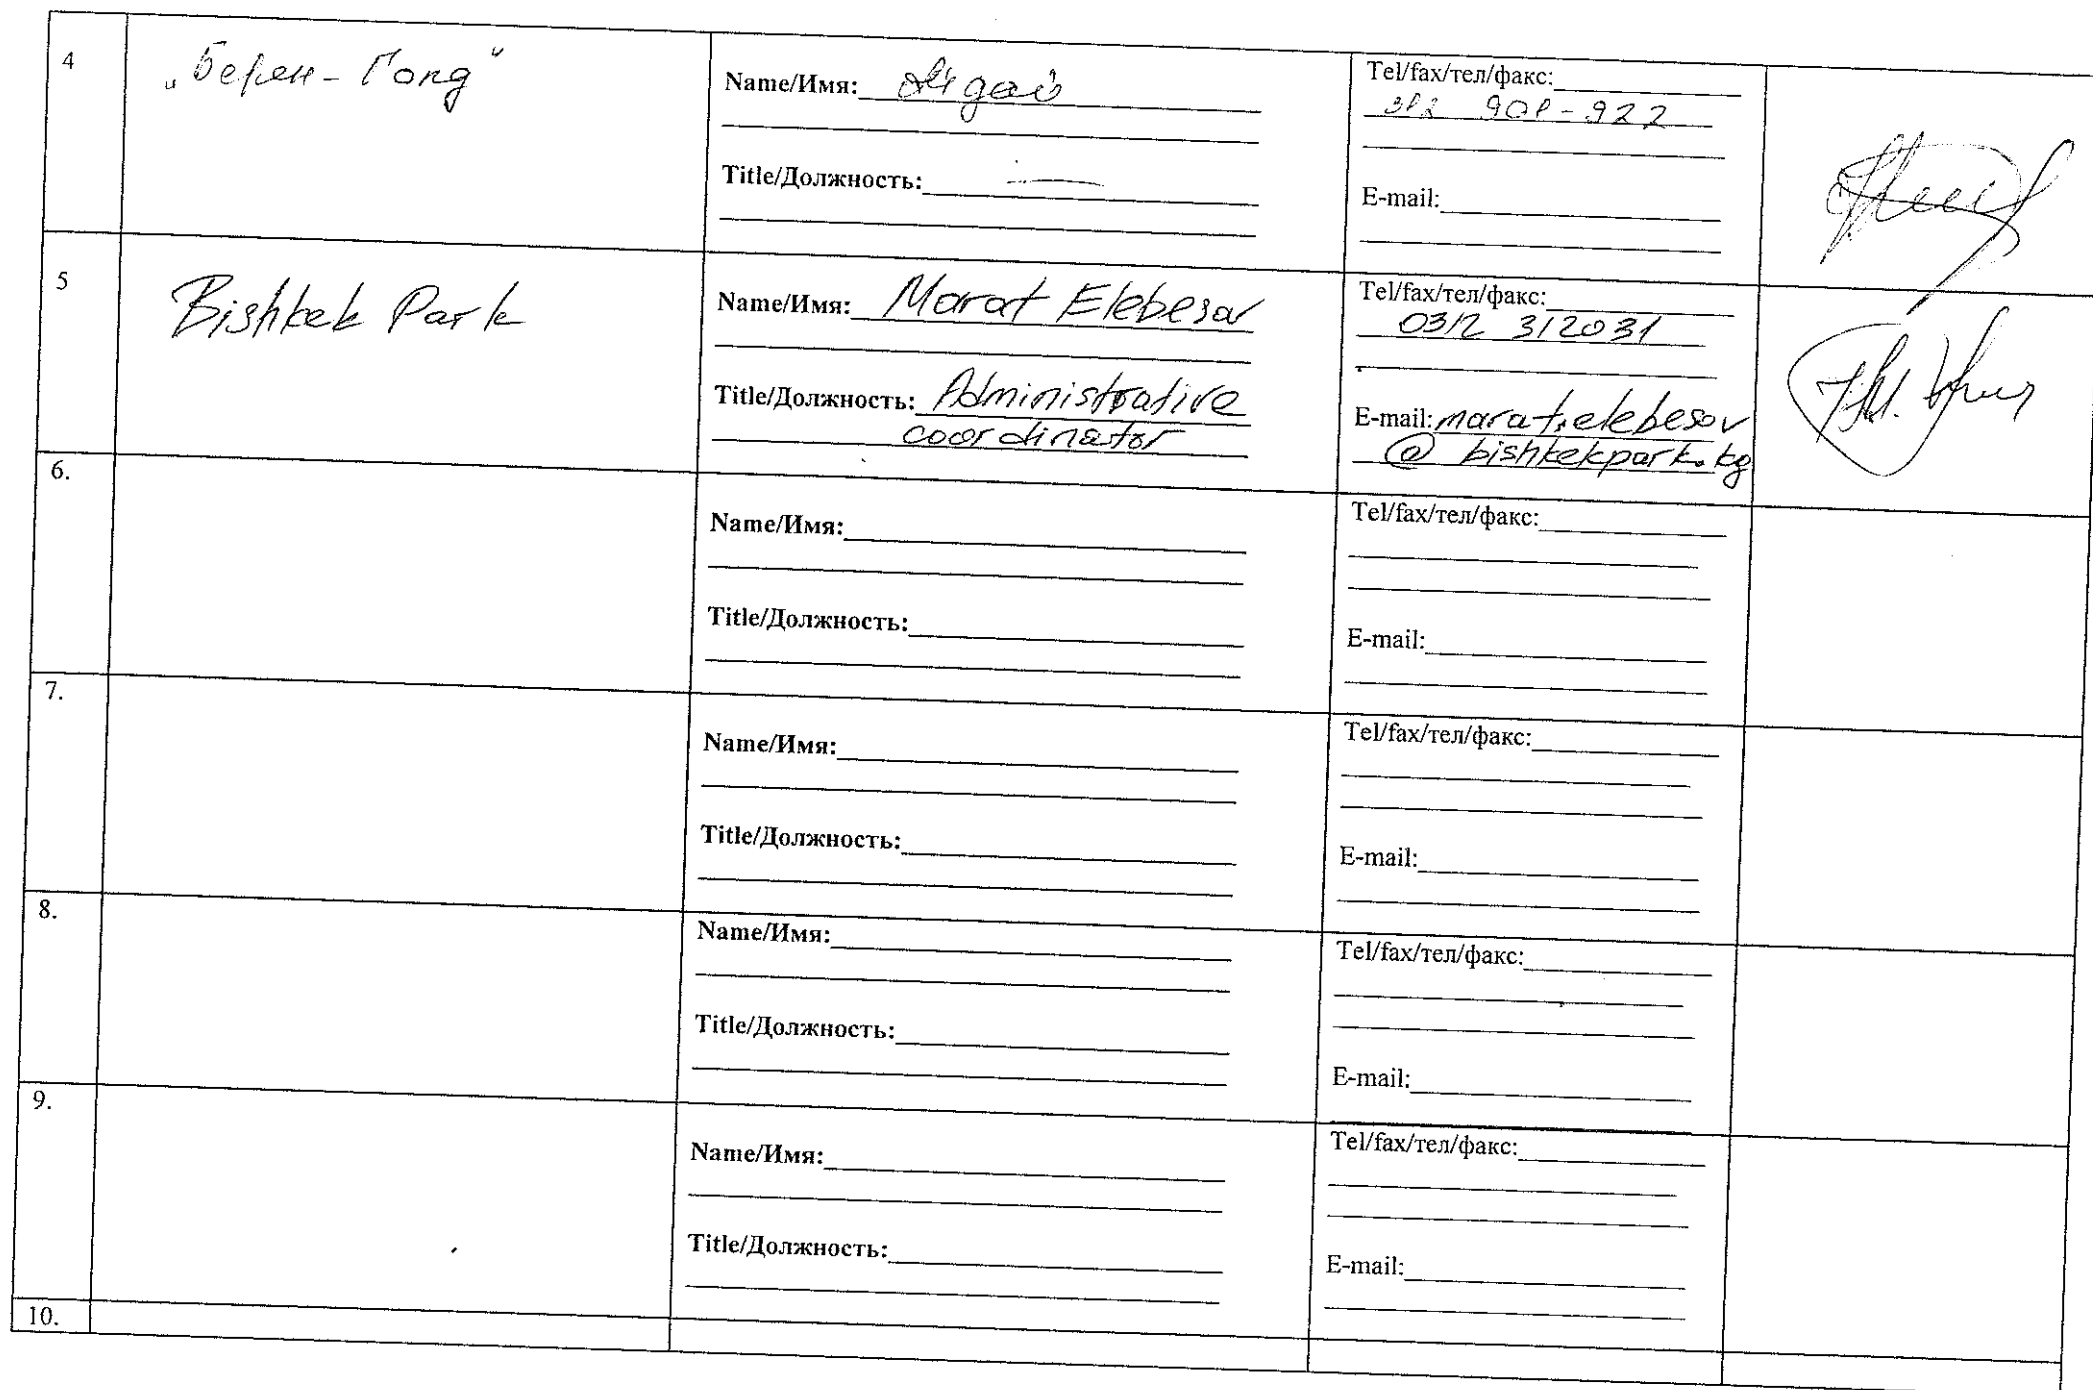 4
„Берен-Голд"
Name/Имя:
Title/Должность: —
Tel/fax/тел/факс:
922
E-mail:
5
Bishkek Park
Name/Имя: Marat Elebesov
Title/Должность: Administrative
coordinator
Tel/fax/тел/факс:
0312 312031
E-mail: marat.elebesov
@ bishkekpark.kg
6.
Name/Имя:
Title/Должность:
Tel/fax/тел/факс:
E-mail:
7.
Name/Имя:
Title/Должность:
Tel/fax/тел/факс:
E-mail:
8.
Name/Имя:
Title/Должность:
Tel/fax/тел/факс:
E-mail:
9.
Name/Имя:
Title/Должность:
Tel/fax/тел/факс:
E-mail:
10.